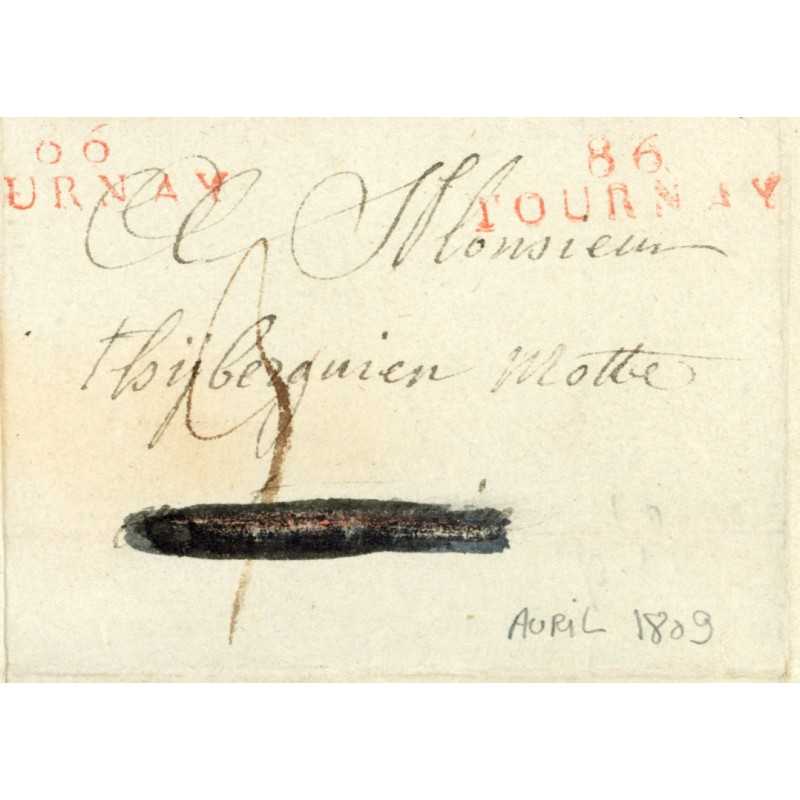 86 86
URNAY TOURNAY
A Monsieur
thijberguien Motte
AVRIL 1809